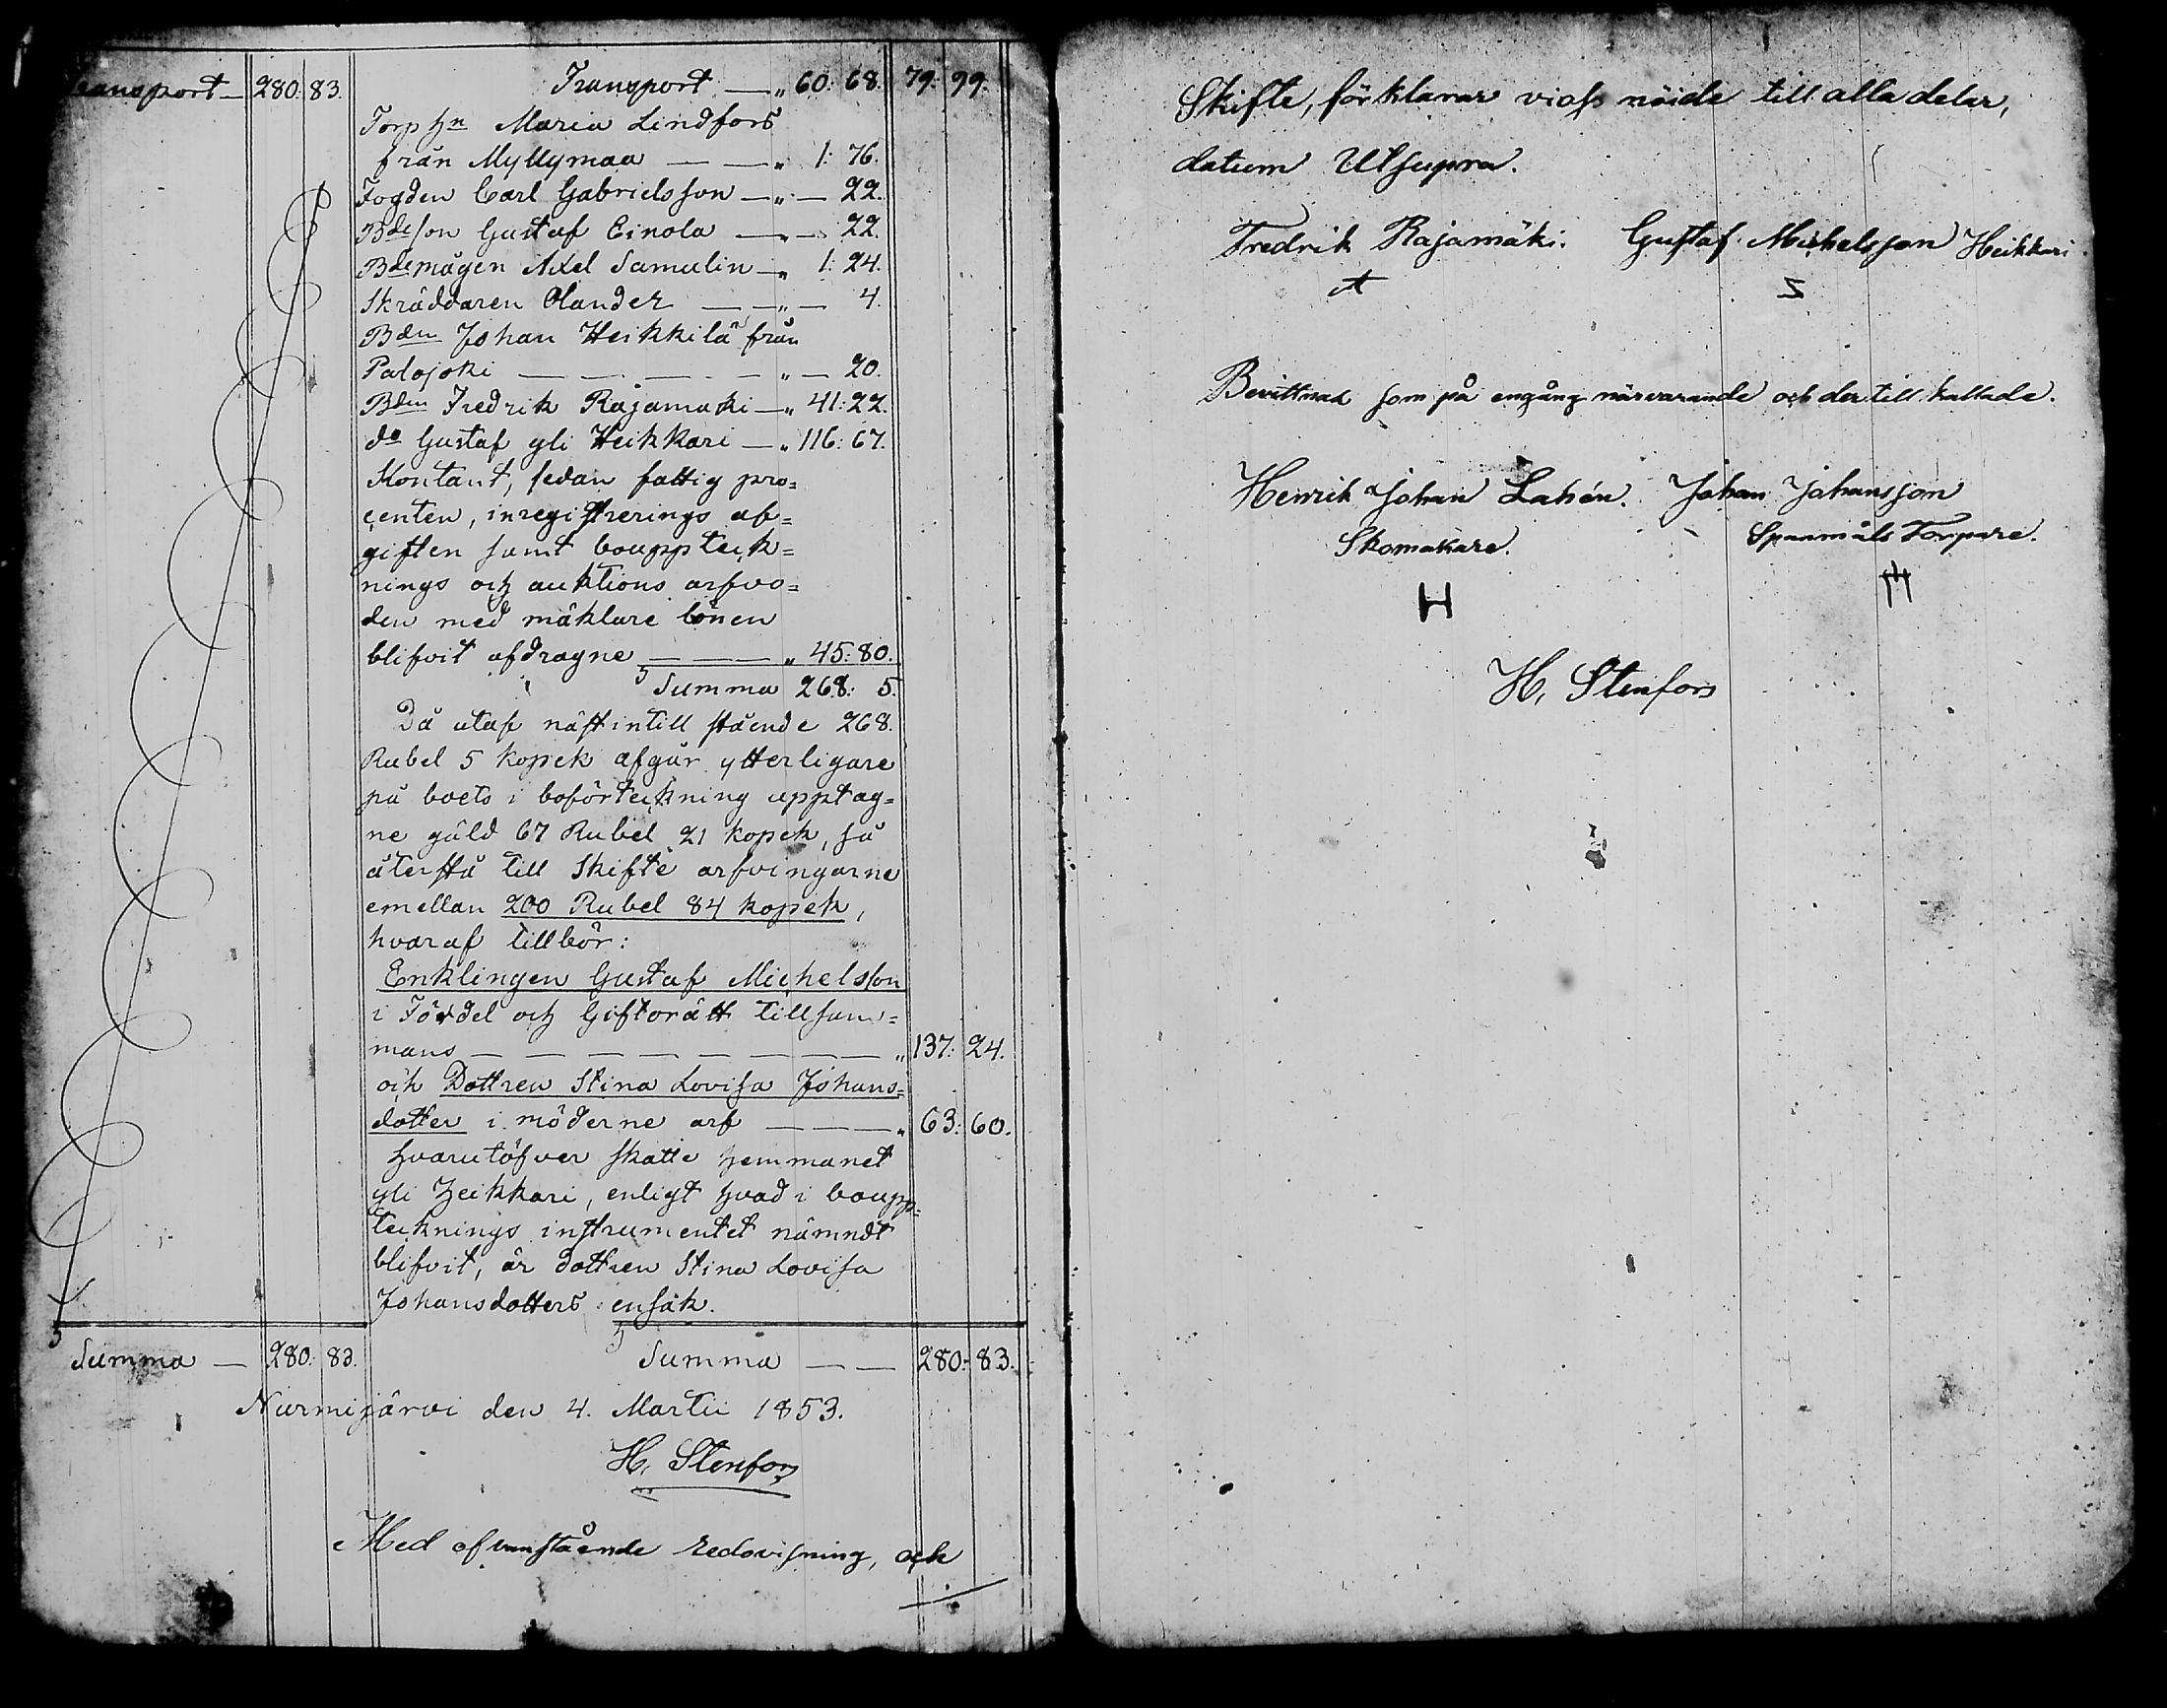 Transport — 280: 83. Transport — „ 60: 68. 79: 99.
Torp hn Maria Lindfors
från Myllymaa — — „ 1: 76.
Fogden Carl Gabrielsson — „ — 22.
Bdeson Gustaf Einola — „ — 22.
Bdemågen Axel Samulin — „ 1: 24.
Skräddaren Olander — — „ — 4.
Bden Johan Heikkilä från
Palojoki — — — — „ — 20.
Bden Fredrik Rajamäki — „ 41: 22.
do Gustaf yli Heikkari — „ 116: 67.
Kontant, sedan fattig pro=
centen, inregistrerings af=
giften samt bouppteck=
nings och auktions arfvo=
den med mäklare lönen
blifvit afdragne — — — „ 45: 80.
Summa 268: 5.
Då utaf nästintill stående 268.
Rubel 5 kopek afgår ytterligare
på boets i boförteckning upptag=
ne gäld 67 Rubel 21 kopek, så
återstå till Skifte arfvingarne
emellan 200 Rubel 84 kopek,
hvaraf tillbör:
Enklingen Gustaf Michelsson
i Fördel och Giftorätt tillsam=
mans — — — — — — — „ 137: 24.
och Dottren Stina Lovisa Johans=
dotter i möderne arf — — — „ 63: 60.
hvarutöfver skatte hemmanet
yli Heikkari, enligt hvad i boupp=
tecknings instrumentet nämndt
blifvit, är dottren Stina Lovisa
Johansdotters ensak.
Summa — 280: 83. Summa — — 280: 83.
Nurmijärvi den 4. Martii 1853.
H. Stenfors
Med ofvanstående redovisning, och
Skifte, förklarar vi oss nöide till alla delar,
datum Utsupra.
Fredrik Rajamäki. Gustaf Michelsson Heikkari.
Bevittnas som på engång närvarande och dertill kallade.
Henrik Johan Lahén. Johan Johansson
Skomakare. Spanmåls Torpare.
H
H. Stenfors